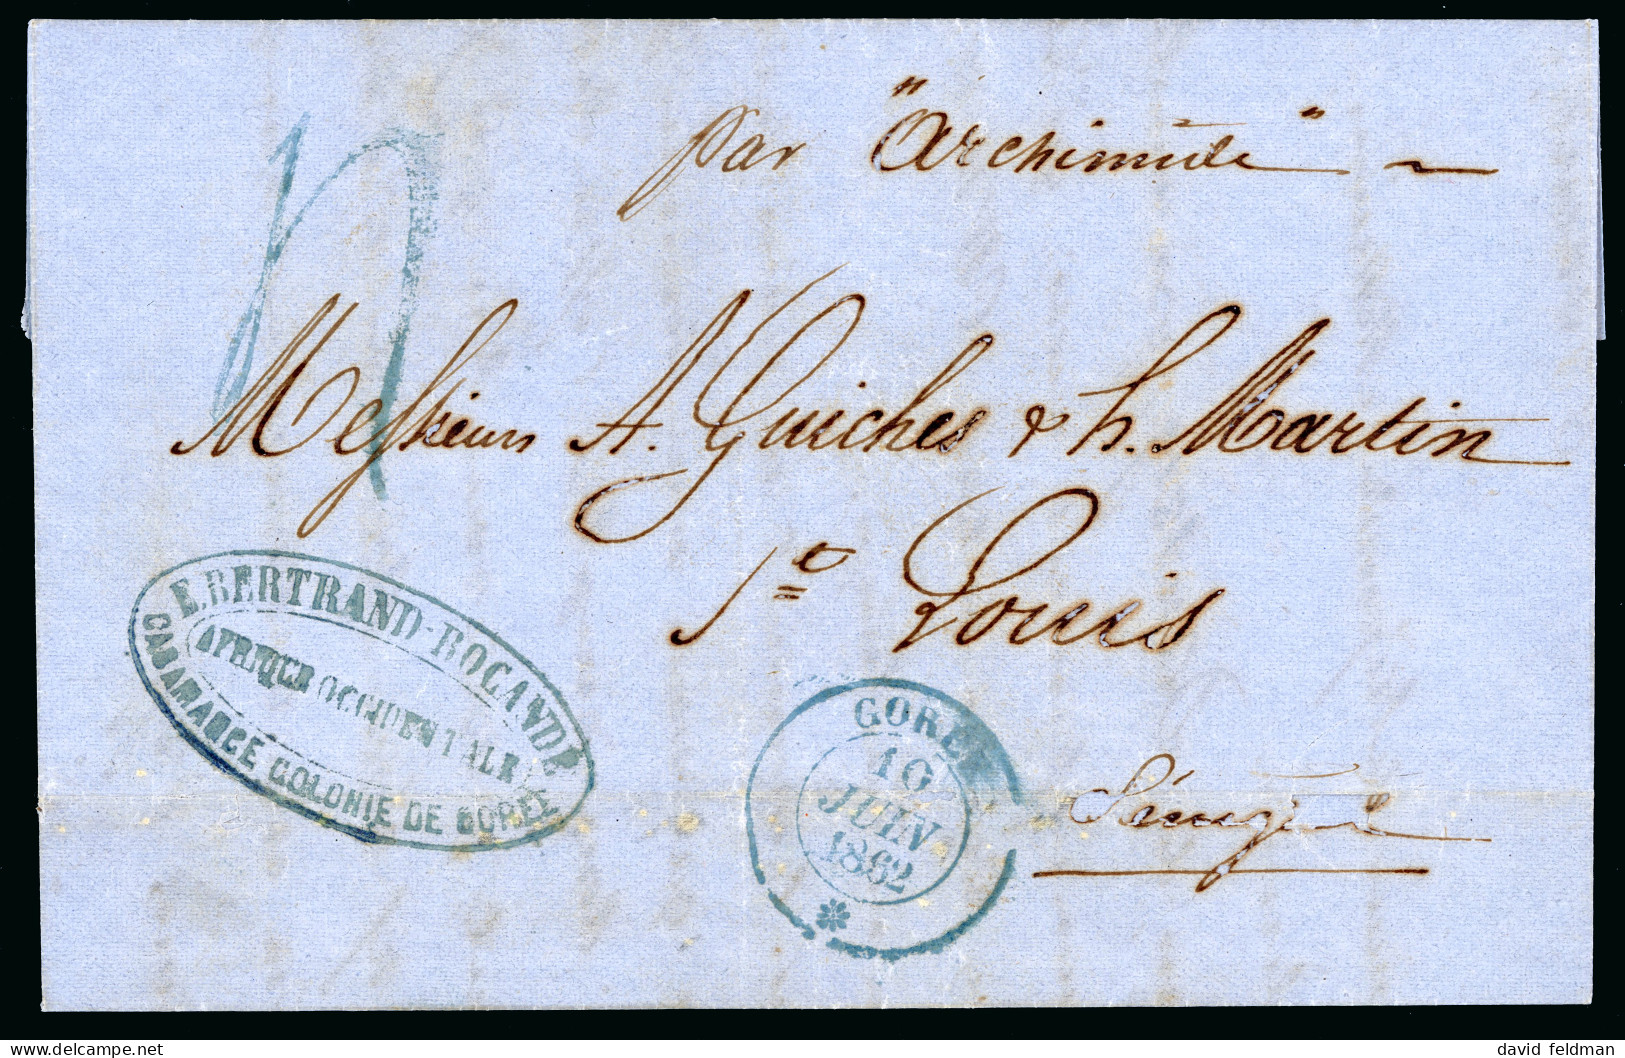 par "Archimède"
Messieurs A. Guiches & h. Martin
St Louis
Sénégal
E. BERTRAND-BOCANDÉ
AFRIQUE OCCIDENTALE
CASAMANCE COLONIE DE GORÉE
GORÉE
16
JUIN
1862
david feldman
www.delcampe.net